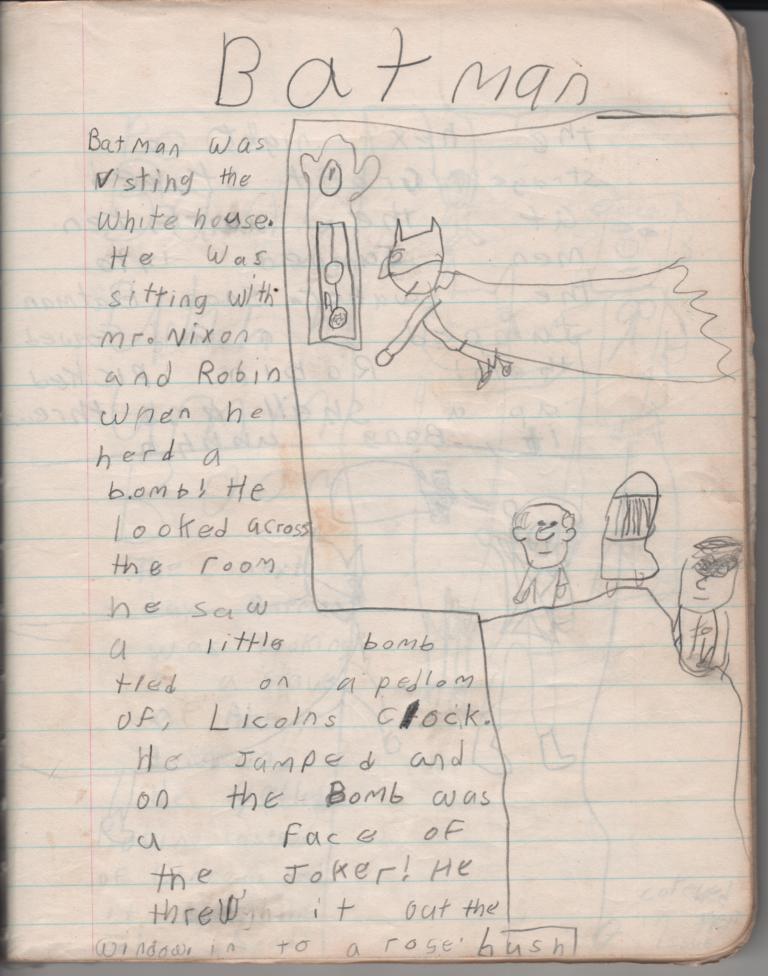 Batman
Batman was
visting the
White house.
He was
sitting with
mr. Nixon
and Robin
when he
herd a
bomb! He
looked across
the room
he saw
a little bomb
tied on a pedlom
of, Licolns Clock.
He Jumped and
on the Bomb was
a face of
the Joker! He
threw it out the
window in to a rose bush